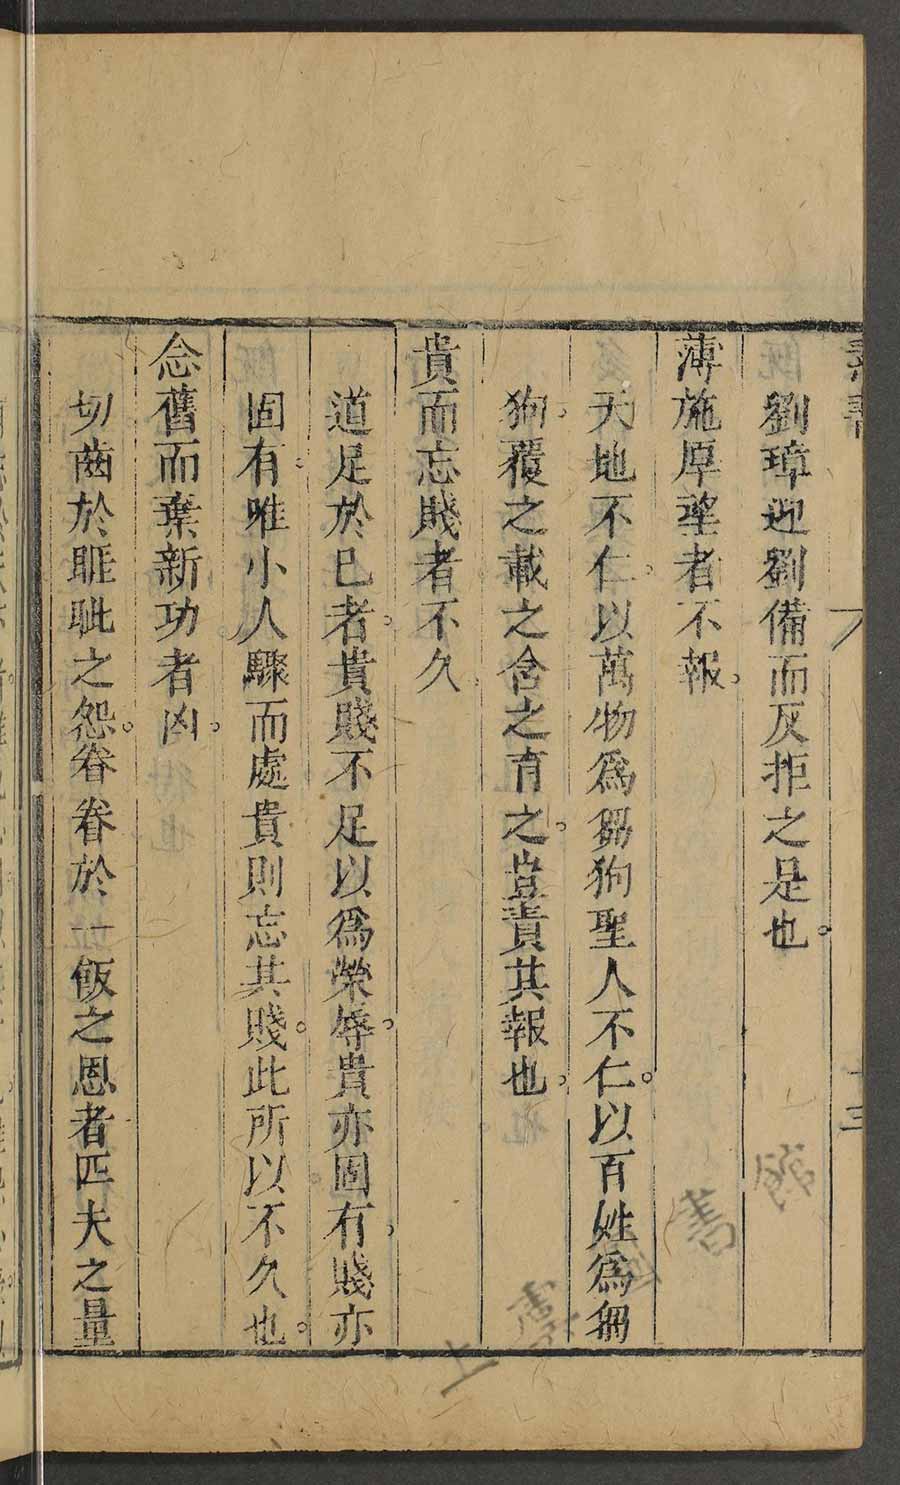 素書
十三
劉璋迎劉備而反拒之是也。
薄施厚望者不報。
天地不仁。以萬物爲芻狗聖人不仁。以百姓爲芻
狗。覆之載之含之育之。豈責其報也。
貴而忘賤者不久
道足於已者。貴賤不足以爲榮辱。貴亦固有。賤亦
固有。唯小人驟而處貴則忘其賤。此所以不久也。
念舊而棄新功者凶。
切齒於睚眦之怨。眷眷於一飯之恩者匹夫之量